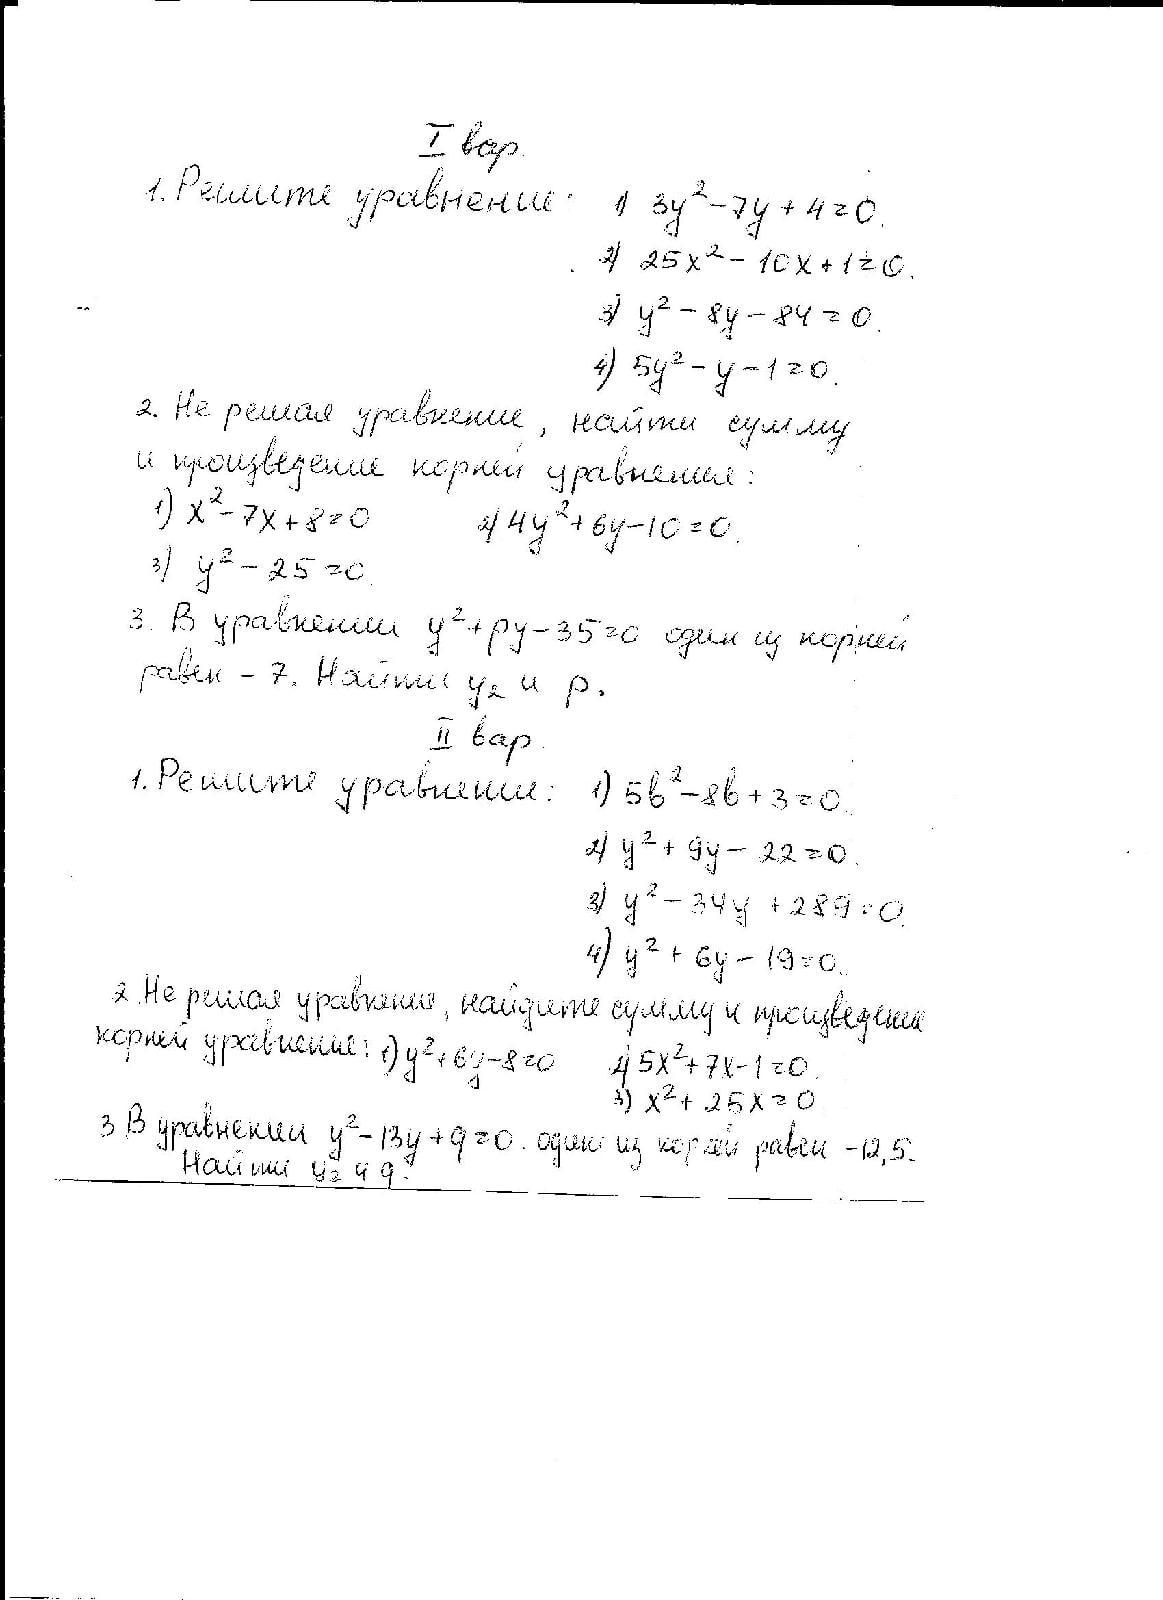 I вар.
1. Решите уравнение: 1) 3y² - 7y + 4 = 0.
2) 25x² - 10x + 1 = 0.
3) y² - 8y - 84 = 0.
4) 5y² - y - 1 = 0.
2. Не решая уравнение, найти сумму
и произведение корней уравнения:
1) x² - 7x + 8 = 0 2) 4y² + 6y - 10 = 0.
3) y² - 25 = 0.
3. В уравнении y² + py - 35 = 0 один из корней
равен - 7. Найти y₂ и p.
II вар.
1. Решите уравнение: 1) 5b² - 8b + 3 = 0.
2) y² + 9y - 22 = 0.
3) y² - 34y + 289 = 0.
4) y² + 6y - 19 = 0.
2. Не решая уравнение, найдите сумму и произведение
корней уравнение: 1) y² + 6y - 8 = 0 2) 5x² + 7x - 1 = 0.
3) x² + 25x = 0
3 В уравнении y² - 13y + q = 0. один из корней равен - 12,5.
Найти y₂ и q.